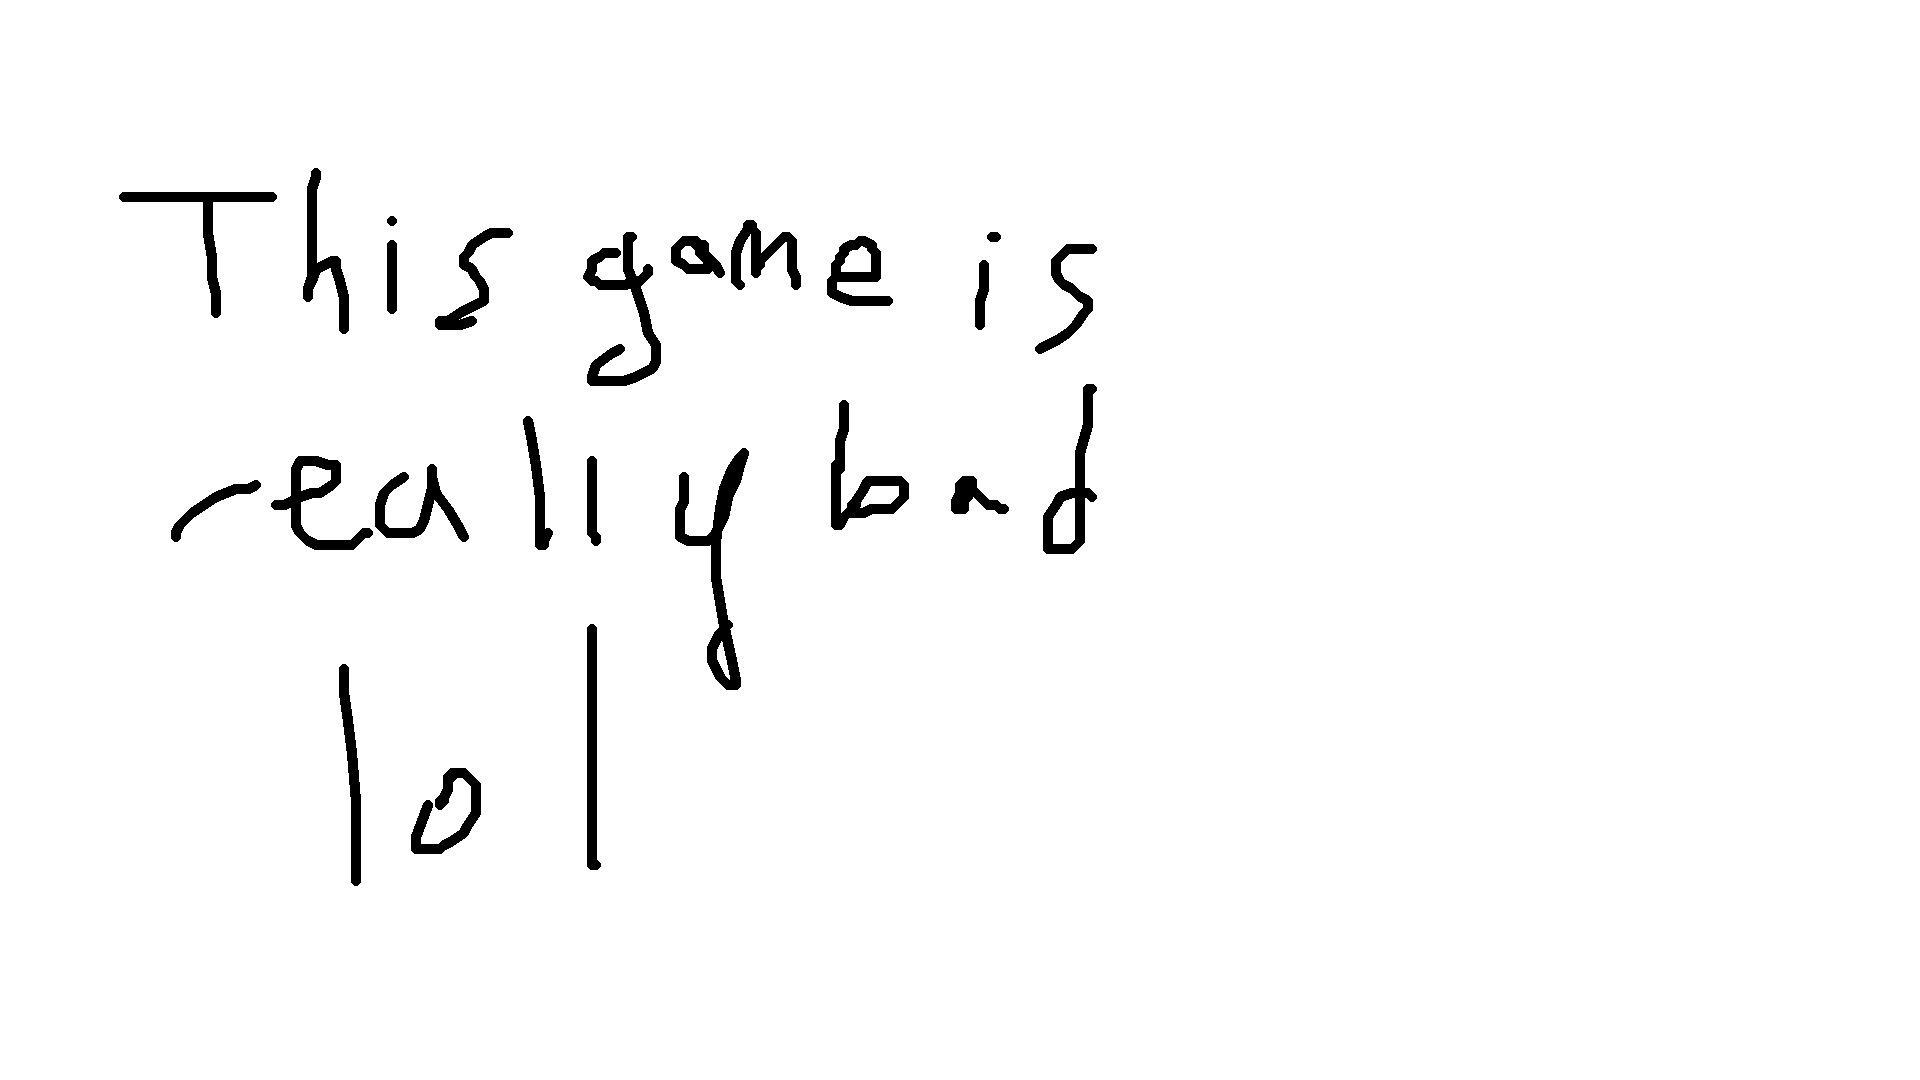 This game is
really bad
lol